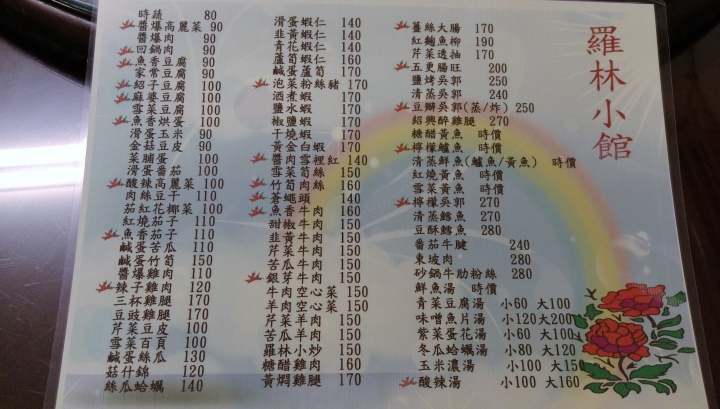 羅林小館
時蔬 80
醬爆高麗菜 90
醬爆肉 90
回鍋肉 90
魚香豆腐 90
家常豆腐 90
紹子豆腐 100
麻婆豆腐 100
雪菜豆腐 100
魚香烘蛋 100
滑蛋玉米 90
金菇豆皮 90
菜脯蛋 100
滑蛋番茄 100
酸辣高麗菜 100
肉絲豆干 110
茄紅花椰菜 100
紅燒茄子 110
魚香茄子 110
鹹蛋苦瓜 110
鹹蛋竹筍 150
醬爆雞肉 110
辣子雞肉 120
三杯雞腿 170
豆豉雞腿 170
芹菜豆皮 100
雪菜百頁 100
鹹蛋絲瓜 130
菇什錦 120
絲瓜蛤蠣 140
滑蛋蝦仁 140
韭黃蝦仁 140
青花蝦仁 140
蘆筍蝦仁 160
鹹蛋蘆筍 140
泡菜粉絲豬 170
酒煮蝦 170
鹽水蝦 170
椒鹽蝦 170
干燒蝦 170
黃金白蝦 170
醬肉雪裡紅 140
雪菜筍絲 150
竹筍肉絲 160
蒼蠅頭 140
魚香牛肉 160
甜椒牛肉 150
韭黃牛肉 150
芹菜牛肉 150
苦瓜牛肉 150
銀芽牛肉 150
牛肉空心菜 150
羊肉空心菜 150
芹菜羊肉 150
苦瓜羊肉 150
羅林小炒 150
糖醋雞肉 160
黃燜雞腿 170
薑絲大腸 170
紅麴魚柳 190
芹菜透抽 170
五更腸旺 200
鹽烤吳郭 250
清蒸吳郭 240
豆瓣吳郭(蒸/炸) 250
紹興醉雞腿 270
糖醋黃魚 時價
檸檬鱸魚 時價
清蒸鮮魚(鱸魚/黃魚) 時價
紅燒黃魚 時價
雪菜黃魚 時價
檸檬吳郭 270
清蒸鱈魚 270
豆酥鱈魚 280
番茄牛腱 240
東坡肉 280
砂鍋牛肋粉絲 280
鮮魚湯 時價
青菜豆腐湯 小60 大100
味噌魚片湯 小120大200
紫菜蛋花湯 小60 大100
冬瓜蛤蠣湯 小80 大120
玉米濃湯 小100 大150
酸辣湯 小100 大160